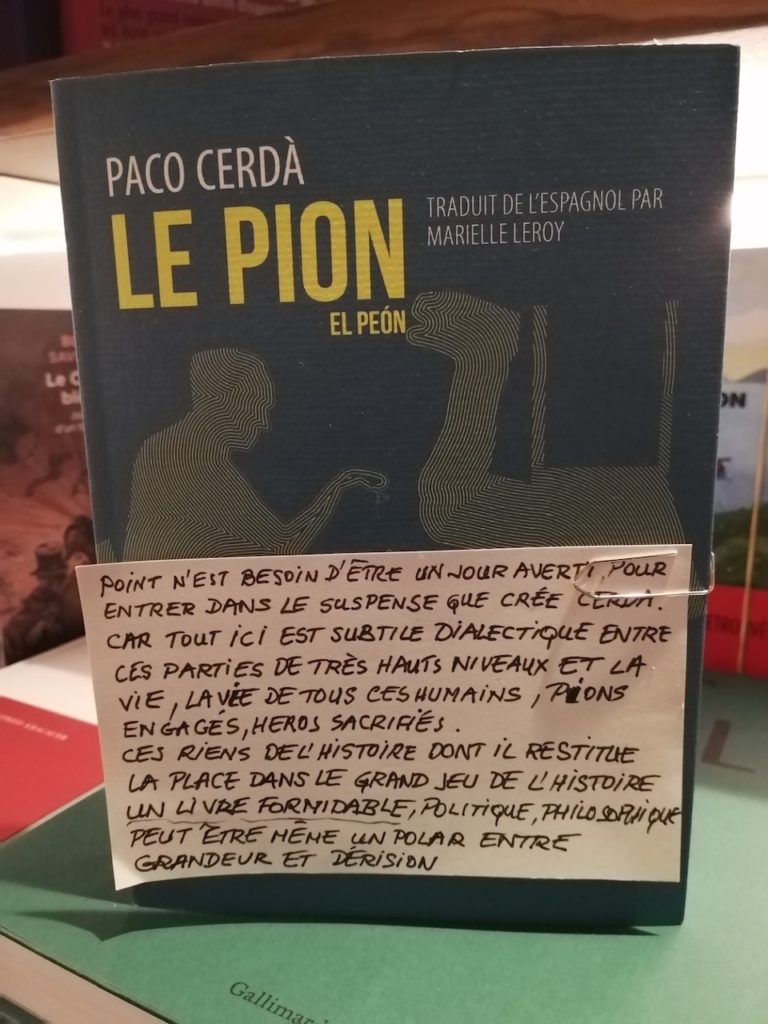 PACO CERDÀ
LE PION
EL PEÓN
TRADUIT DE L'ESPAGNOL PAR
MARIELLE LEROY
POINT N'EST BESOIN D'ÊTRE UN JOUR AVERTI, POUR
ENTRER DANS LE SUSPENSE QUE CRÉE CERDA.
CAR TOUT ICI EST SUBTILE DIALECTIQUE ENTRE
CES PARTIES DE TRÈS HAUTS NIVEAUX ET LA
VIE, LA VIE DE TOUS CES HUMAINS, PIONS
ENGAGÉS, HEROS SACRIFIÉS.
CES RIENS DE L'HISTOIRE DONT IL RESTITUE
LA PLACE DANS LE GRAND JEU DE L'HISTOIRE
UN LIVRE FORMIDABLE, POLITIQUE, PHILOSOPHIQUE
PEUT ÊTRE MÊME UN POLAR ENTRE
GRANDEUR ET DÉRISION
Gallimar